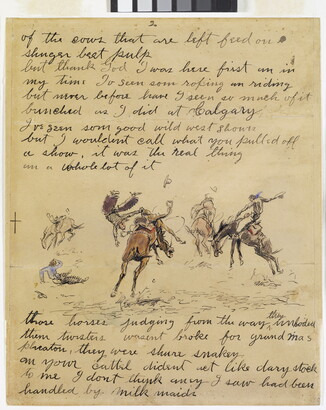 2
of the cows that are left feed on
shugar beet pulp
but thank God I was here first an in
my time Iv seen som roping an riding
but never before have I seen so much of it
bunched as I did at Calgary
Ive seen som good wild west shows
but I wouldent call what you pulled off
a show, it was the real thing
an a whole lot of it
those horses judging from the way they unloded
them twisters wasent broke for grand mas
pheaton, they were shure snakey
an your cattel dident act like dary stock
to me I dont think any I saw had been
handled by milk maids